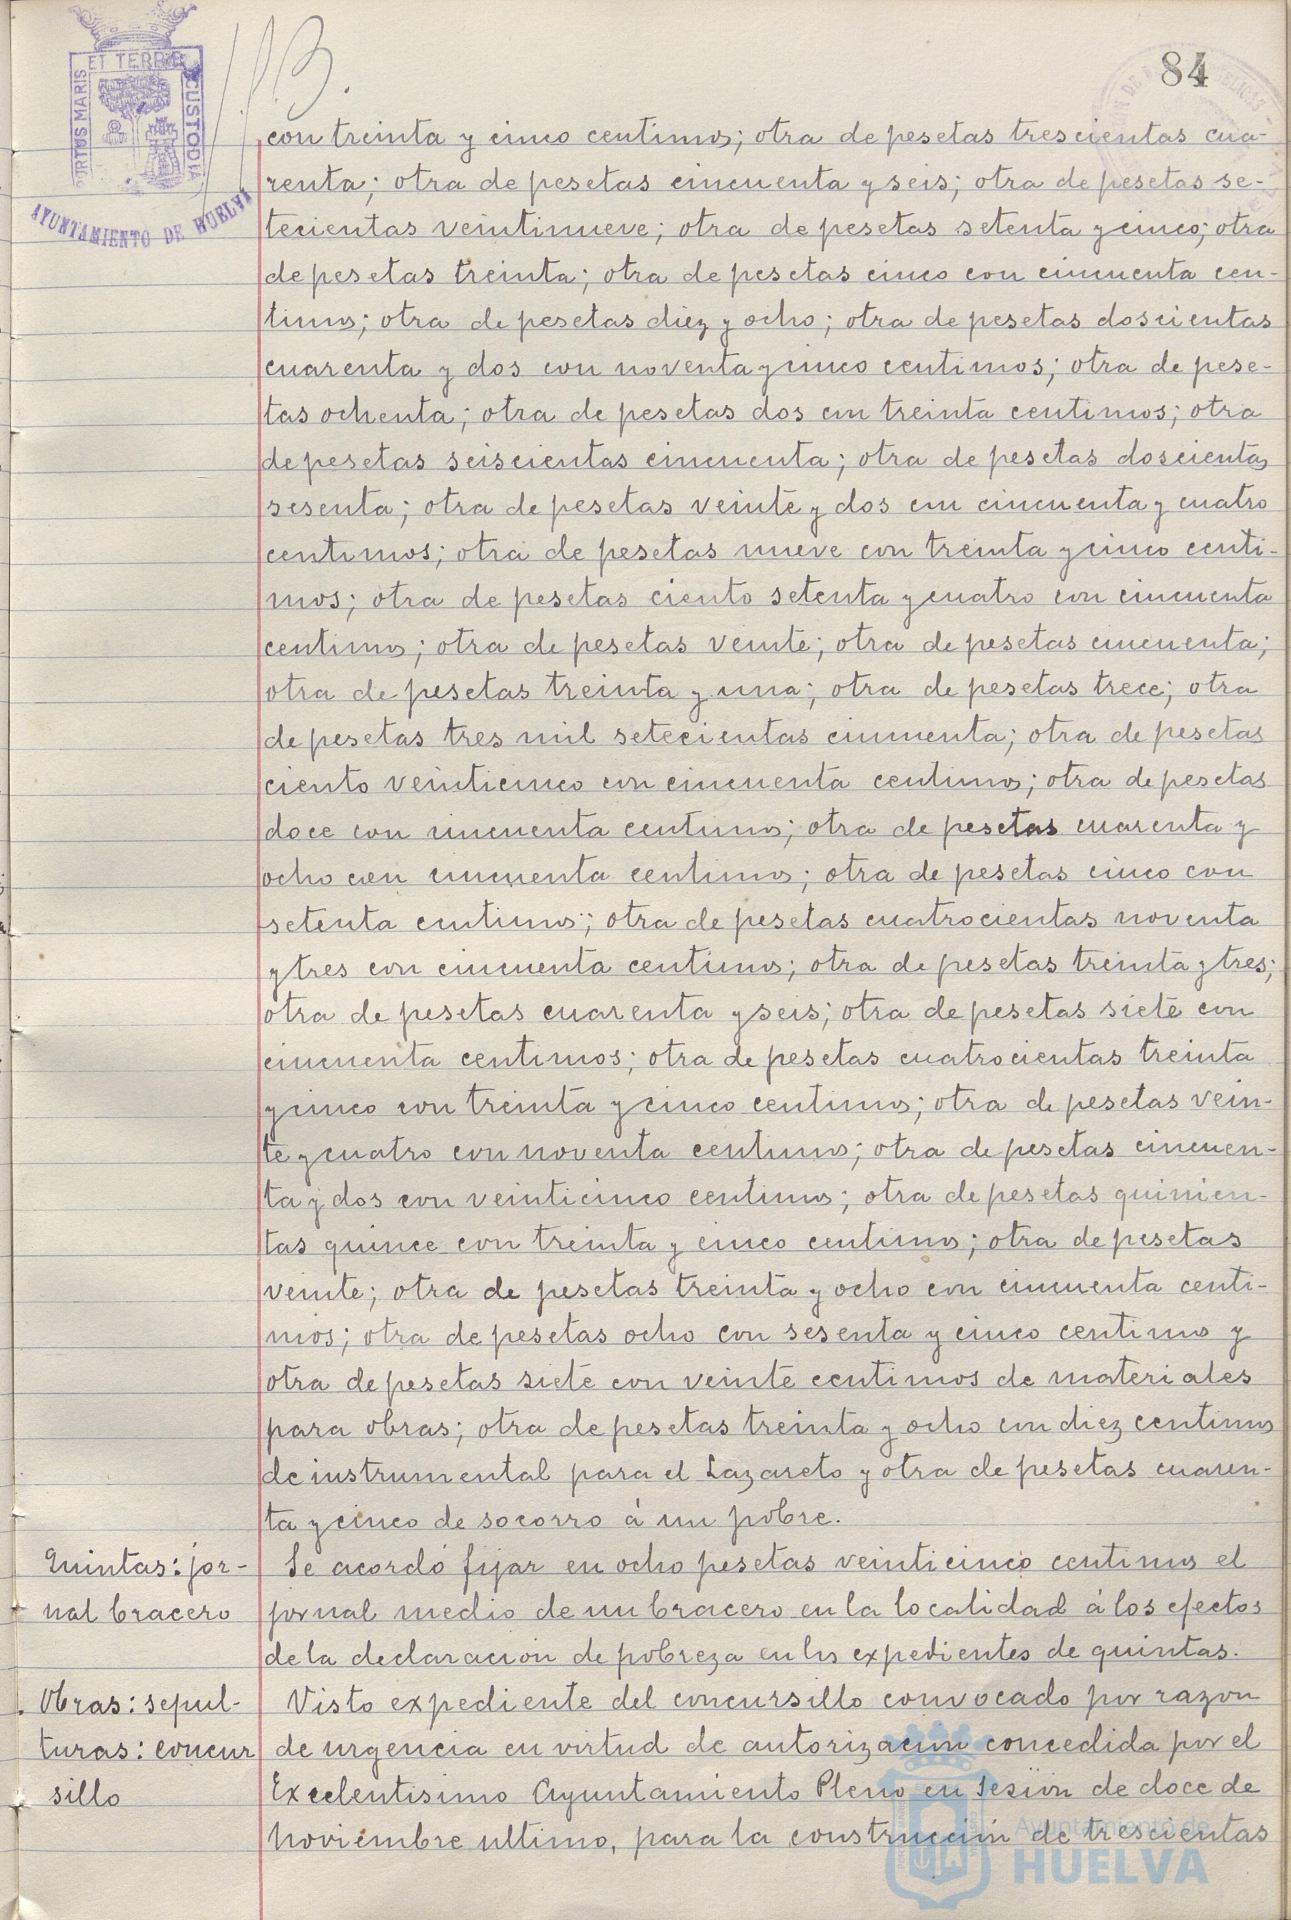 84
PORTUS MARIS ET TERRE CUSTODIA
AYUNTAMIENTO DE HUELVA
con treinta y cinco centimos; otra de pesetas trescientas cua-
renta; otra de pesetas cincuenta y seis; otra de pesetas se-
tecientas veintinueve; otra de pesetas setenta y cinco; otra
de pesetas treinta; otra de pesetas cinco con cincuenta cen-
timos; otra de pesetas diez y ocho; otra de pesetas doscientas
cuarenta y dos con noventa y cinco centimos; otra de pese-
tas ochenta; otra de pesetas dos con treinta centimos; otra
de pesetas seiscientas cincuenta; otra de pesetas doscientas
sesenta; otra de pesetas veinte y dos con cincuenta y cuatro
centimos; otra de pesetas nueve con treinta y cinco centi-
mos; otra de pesetas ciento setenta y cuatro con cincuenta
centimos; otra de pesetas veinte; otra de pesetas cincuenta;
otra de pesetas treinta y una; otra de pesetas trece; otra
de pesetas tres mil setecientas cincuenta; otra de pesetas
ciento veinticinco con cincuenta centimos; otra de pesetas
doce con cincuenta centimos; otra de pesetas cuarenta y
ocho con cincuenta centimos; otra de pesetas cinco con
setenta centimos; otra de pesetas cuatrocientas noventa
y tres con cincuenta centimos; otra de pesetas treinta y tres;
otra de pesetas cuarenta y seis; otra de pesetas siete con
cincuenta centimos; otra de pesetas cuatrocientas treinta
y cinco con treinta y cinco centimos; otra de pesetas vein-
te y cuatro con noventa centimos; otra de pesetas cincuen-
ta y dos con veinticinco centimos; otra de pesetas quinien-
tas quince con treinta y cinco centimos; otra de pesetas
veinte; otra de pesetas treinta y ocho con cincuenta centi-
mos; otra de pesetas ocho con sesenta y cinco centimos y
otra de pesetas siete con veinte centimos de materiales
para obras; otra de pesetas treinta y ocho con diez centimos
de instrumental para el Lazareto y otra de pesetas cuaren-
ta y cinco de socorro á un pobre.
Quintas: jor-
nal bracero
Se acordó fijar en ocho pesetas veinticinco centimos el
jornal medio de un bracero en la localidad á los efectos
de la declaracion de pobreza en los expedientes de quintas.
Obras: sepul-
turas: concur
sillo
Visto expediente del concursillo convocado por razon
de urgencia en virtud de autorizacion concedida por el
Excelentisimo Ayuntamiento Pleno en sesion de doce de
Noviembre ultimo, para la construccion de trescientas
Ayuntamiento de
HUELVA